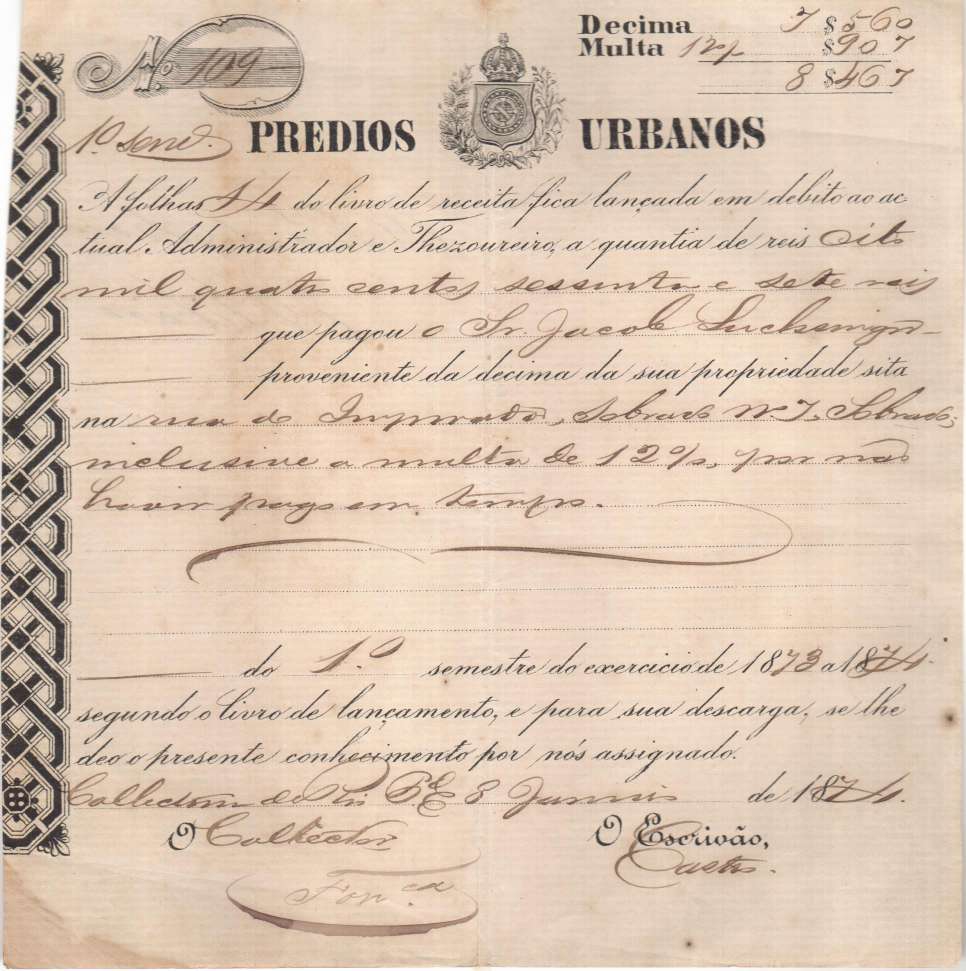 Decima 7 $ 560
Multa 12% $ 907
8 $ 467
No. 109
1º sem. PREDIOS URBANOS
A folhas 14 do livro de receita fica lançada em debito ao ac
tual Administrador e Thezoureiro, a quantia de reis oito
mil quatro centos sessenta e sete reis
que pagou o Sr. Jacob
proveniente da decima da sua propriedade sita
na rua do Imperador, Sobrado Nº 7, Sobrado,
inclusive a multa de 12%, por não
haver pago em tempo.
do 1.º semestre do exercicio de 1873 a 1874.
segundo o livro de lançamento, e para sua descarga, se lhe
deo o presente conhecimento por nós assignado.
Collectoria de 8 Junho de 1874.
O Collector O Escrivão,
Fonca Castro.